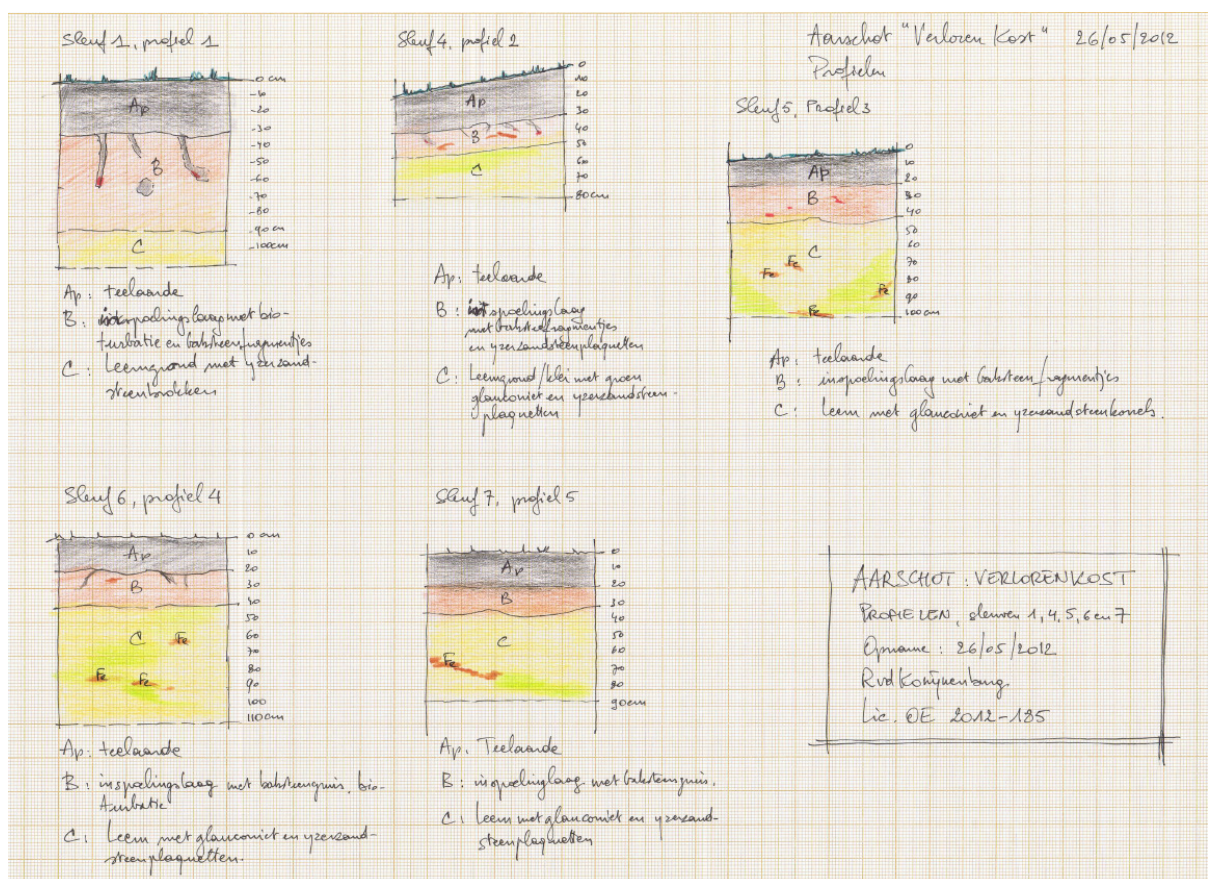 Aarschot "Verloren Kost" 26/05/2012
Profielen
Sleuf 1, profiel 1
0 cm
-10
-20
-30
-40
-50
-60
-70
-80
-90 cm
-100cm
Ap
B
C
Ap: teelaarde
B: inspoelingslaag met bio-
turbatie en baksteenfragmentjes
C: Leemgrond met yzerzand-
steenbrokken
Sleuf 4, profiel 2
0
10
20
30
40
50
60
70
80cm
Ap
B
C
Ap: teelaarde
B: inspoelingslaag
met baksteenfragmentjes
en yzerzandsteenplaquetten
C: Leemgrond/klei met groen
glauconiet en yzerzandsteen-
plaquetten
Sleuf 5, Profiel 3
0
10
20
30
40
50
60
70
80
90
100 cm
Ap
B
C
Fe
Fe
Fe
Fe
Ap: teelaarde
B: inspoelingslaag met baksteenfragmentjes
C: Leem met glauconiet en yzerzandsteenkorrels.
Sleuf 6, profiel 4
0 cm
10
20
30
40
50
60
70
80
90
100
110cm
Ap
B
C
Fe
Fe
Fe
Ap: teelaarde
B: inspoelingslaag met baksteengruis, bio-
turbatie
C: Leem met glauconiet en yzerzand-
steenplaquetten.
Sleuf 7, profiel 5
0
10
20
30
40
50
60
70
80
90cm
Ap
B
C
Fe
Ap. Teelaarde
B: inspoelinglaag met baksteengruis.
C: Leem met glauconiet en yzerzand-
steenplaquetten
AARSCHOT: VERLORENKOST
PROFIELEN, sleuven 1, 4, 5, 6 en 7
Opname: 26/05/2012
Rvd Konijnenburg
Lic. OE 2012-185